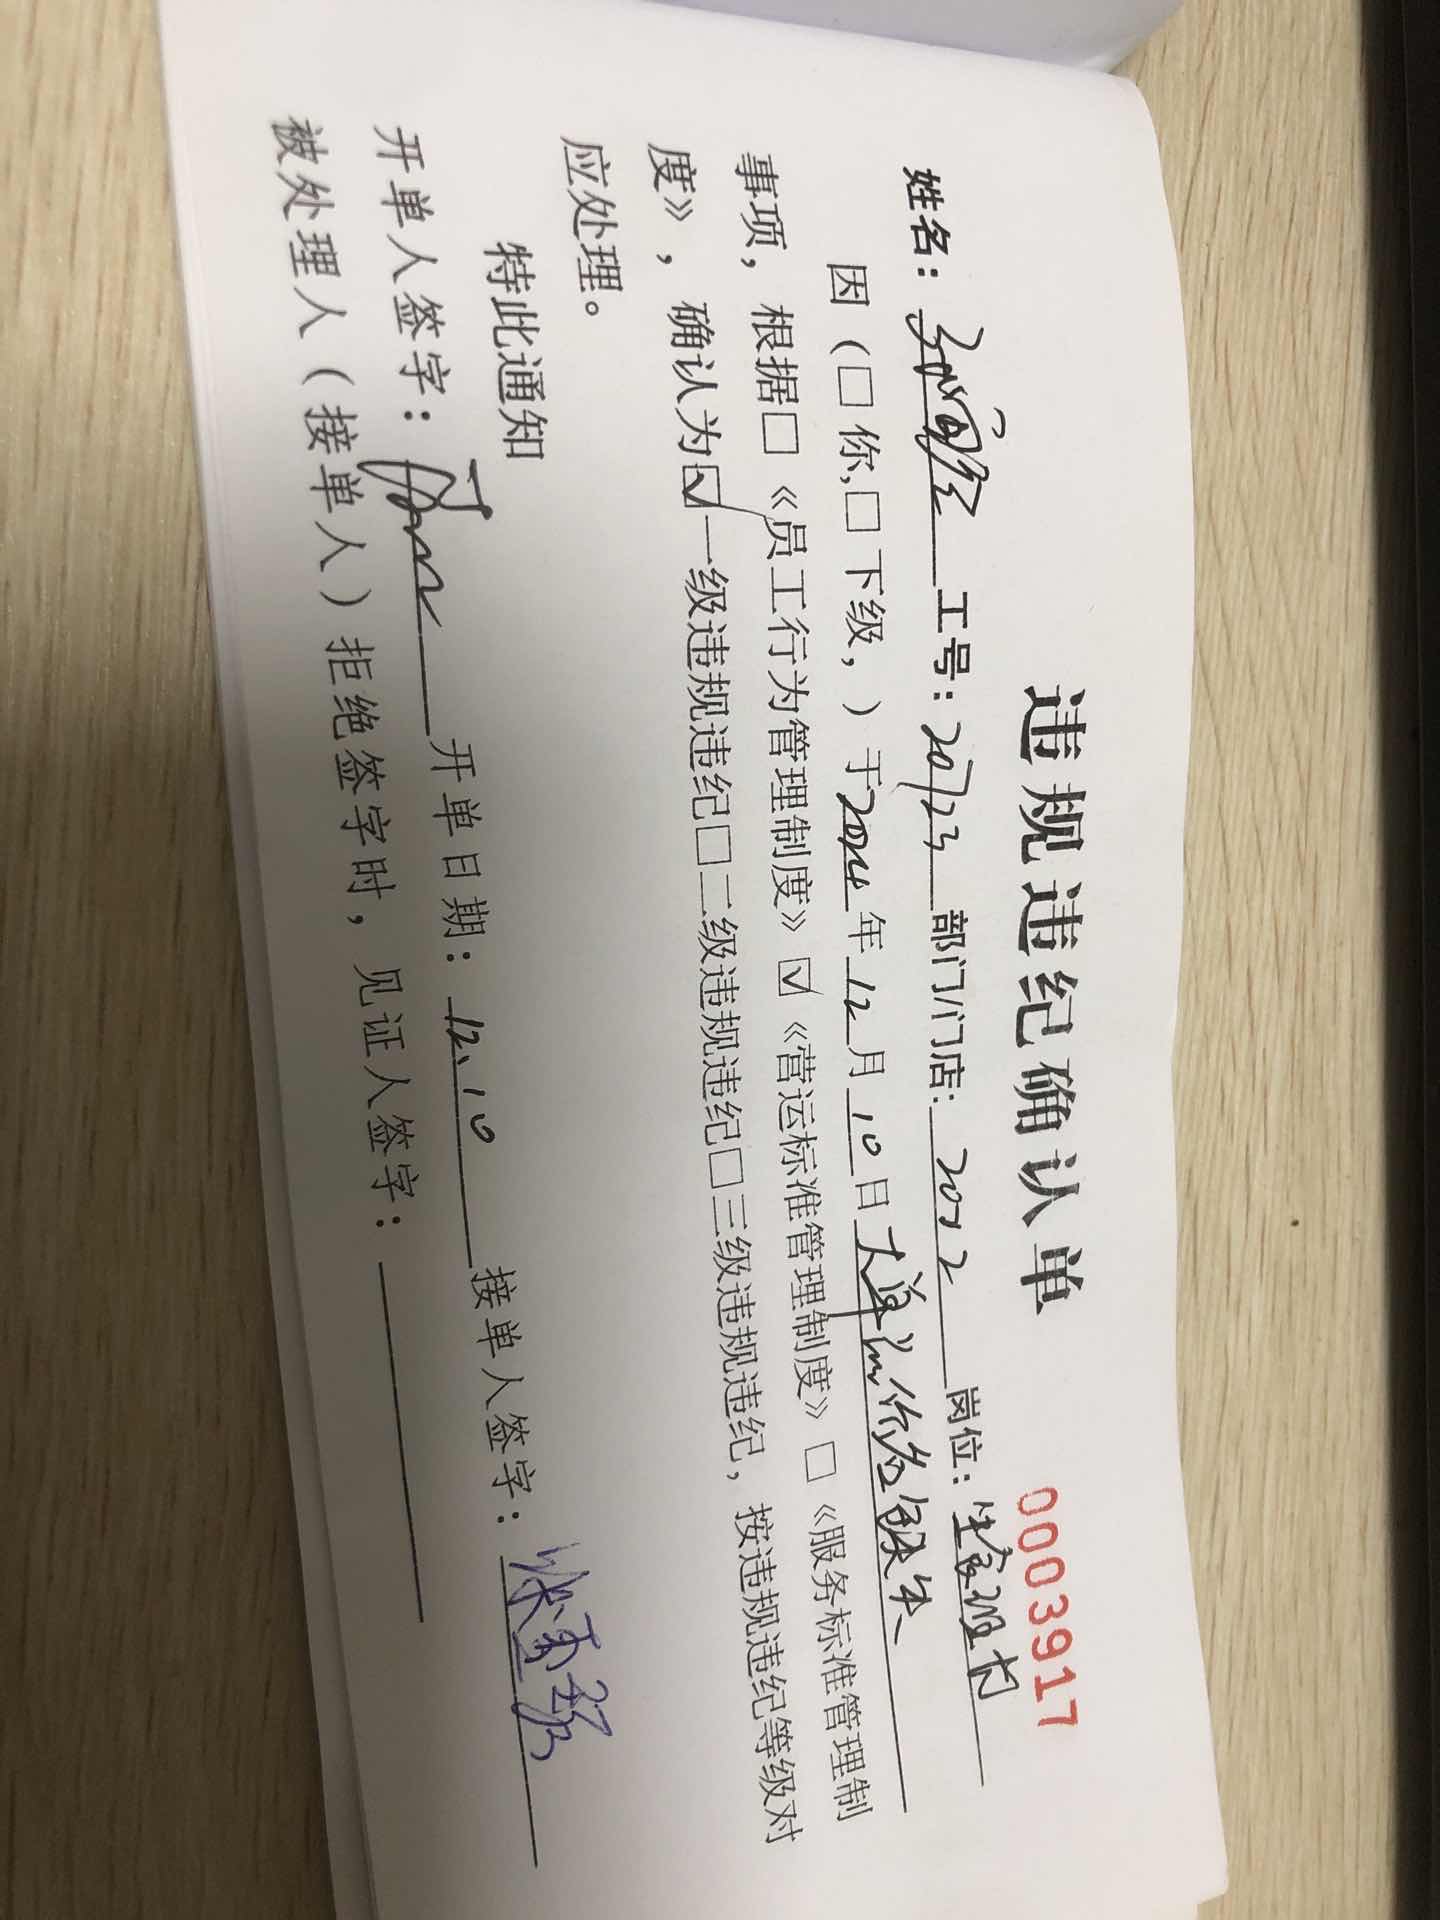 违规违纪确认单 0003917
姓名： 工号：20723 部门/门店：2072 岗位：生家组长
因（□你,□下级，）于2024年12月10日 价签缺失
事项，根据□《员工行为管理制度》☑《营运标准管理制度》□《服务标准管理制
度》，确认为☑一级违规违纪□二级违规违纪□三级违规违纪，按违规违纪等级对
应处理。
特此通知
开单人签字： 开单日期：12.10 接单人签字：
被处理人（接单人）拒绝签字时，见证人签字：